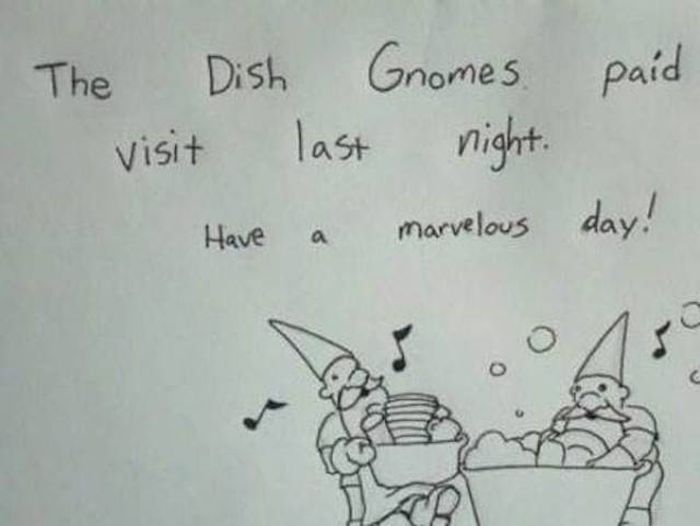 The Dish Gnomes paid
visit last night.
Have a marvelous day!